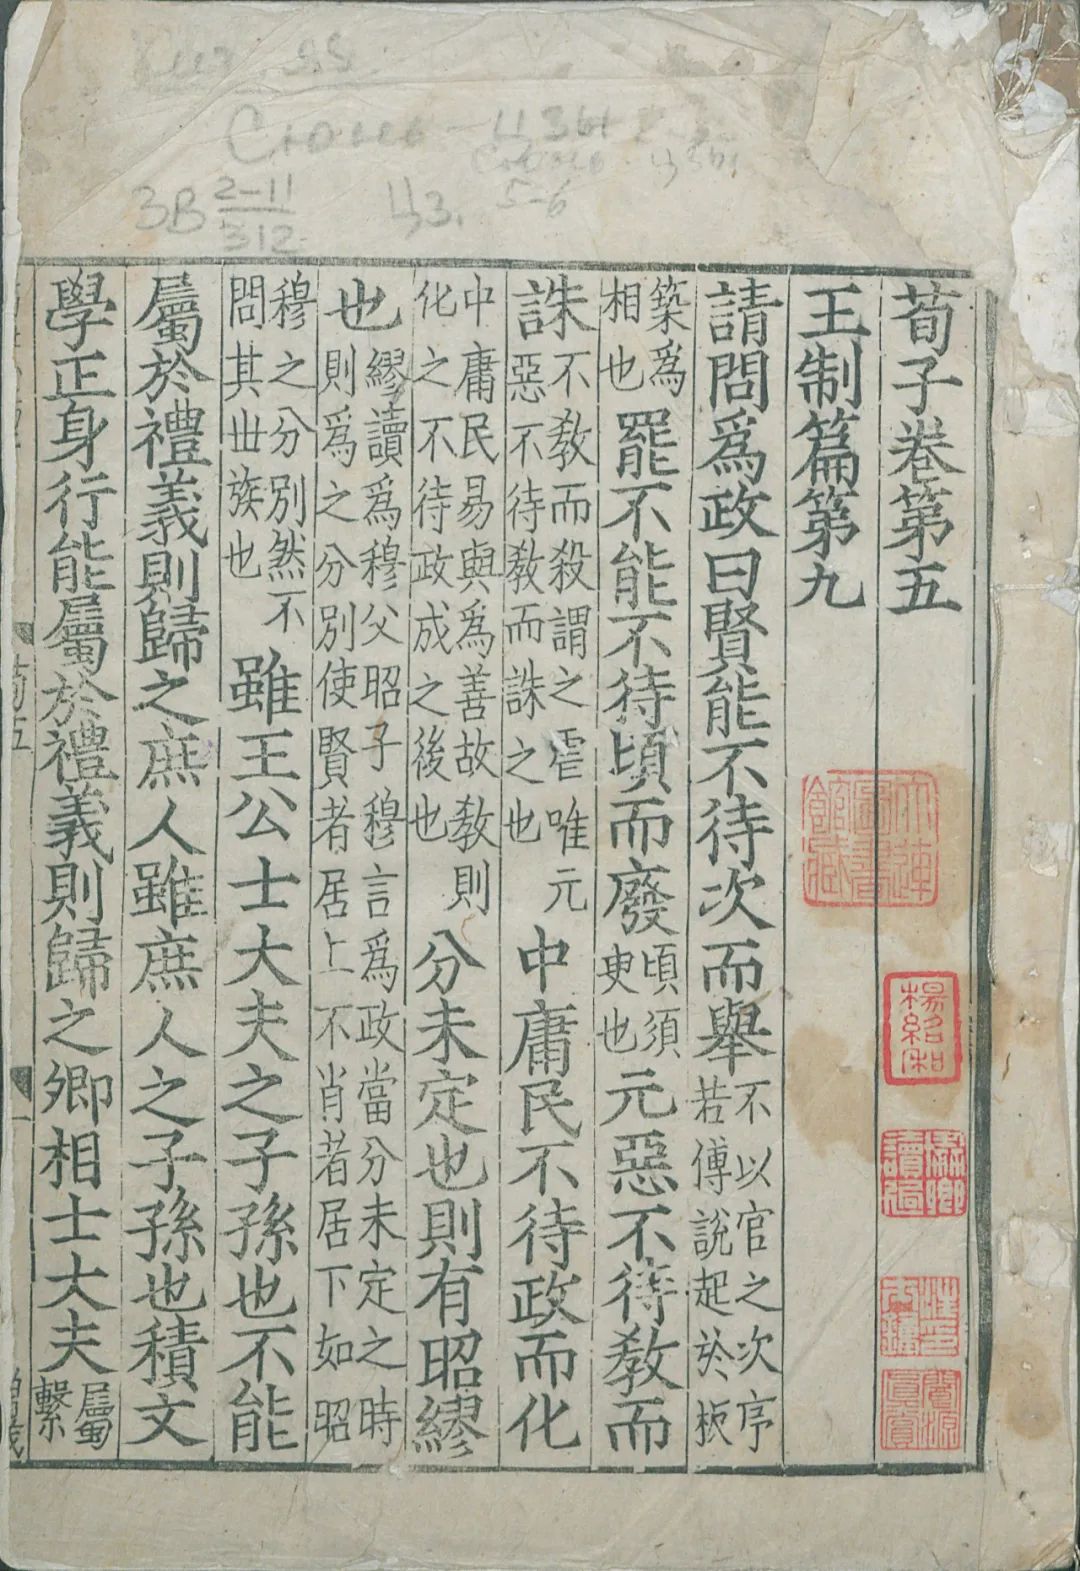 荀子卷第五
王制篇第九
請問爲政曰賢能不待次而舉不以官之次序若傅說起於板
築爲相也罷不能不待頃而廢頃須臾也元惡不待教而
誅不教而殺謂之虐唯元惡不待教而誅之也中庸民不待政而化
中庸民易與爲善故教則化之不待政成之後也分未定也則有昭繆
也繆讀爲穆父昭子穆言爲政當分未定之時則爲之分別使賢者居上不肖者居下如昭
穆之分別然不問其丗族也雖王公士大夫之子孫也不能
屬於禮義則歸之庶人雖庶人之子孫也積文
學正身行能屬於禮義則歸之卿相士大夫屬繫
荀五
一
大連圖書館藏
楊紹和
讀過
汪印士鐘
閬源真賞
ЗВ 2-11
312
ЦЗ.
5-6